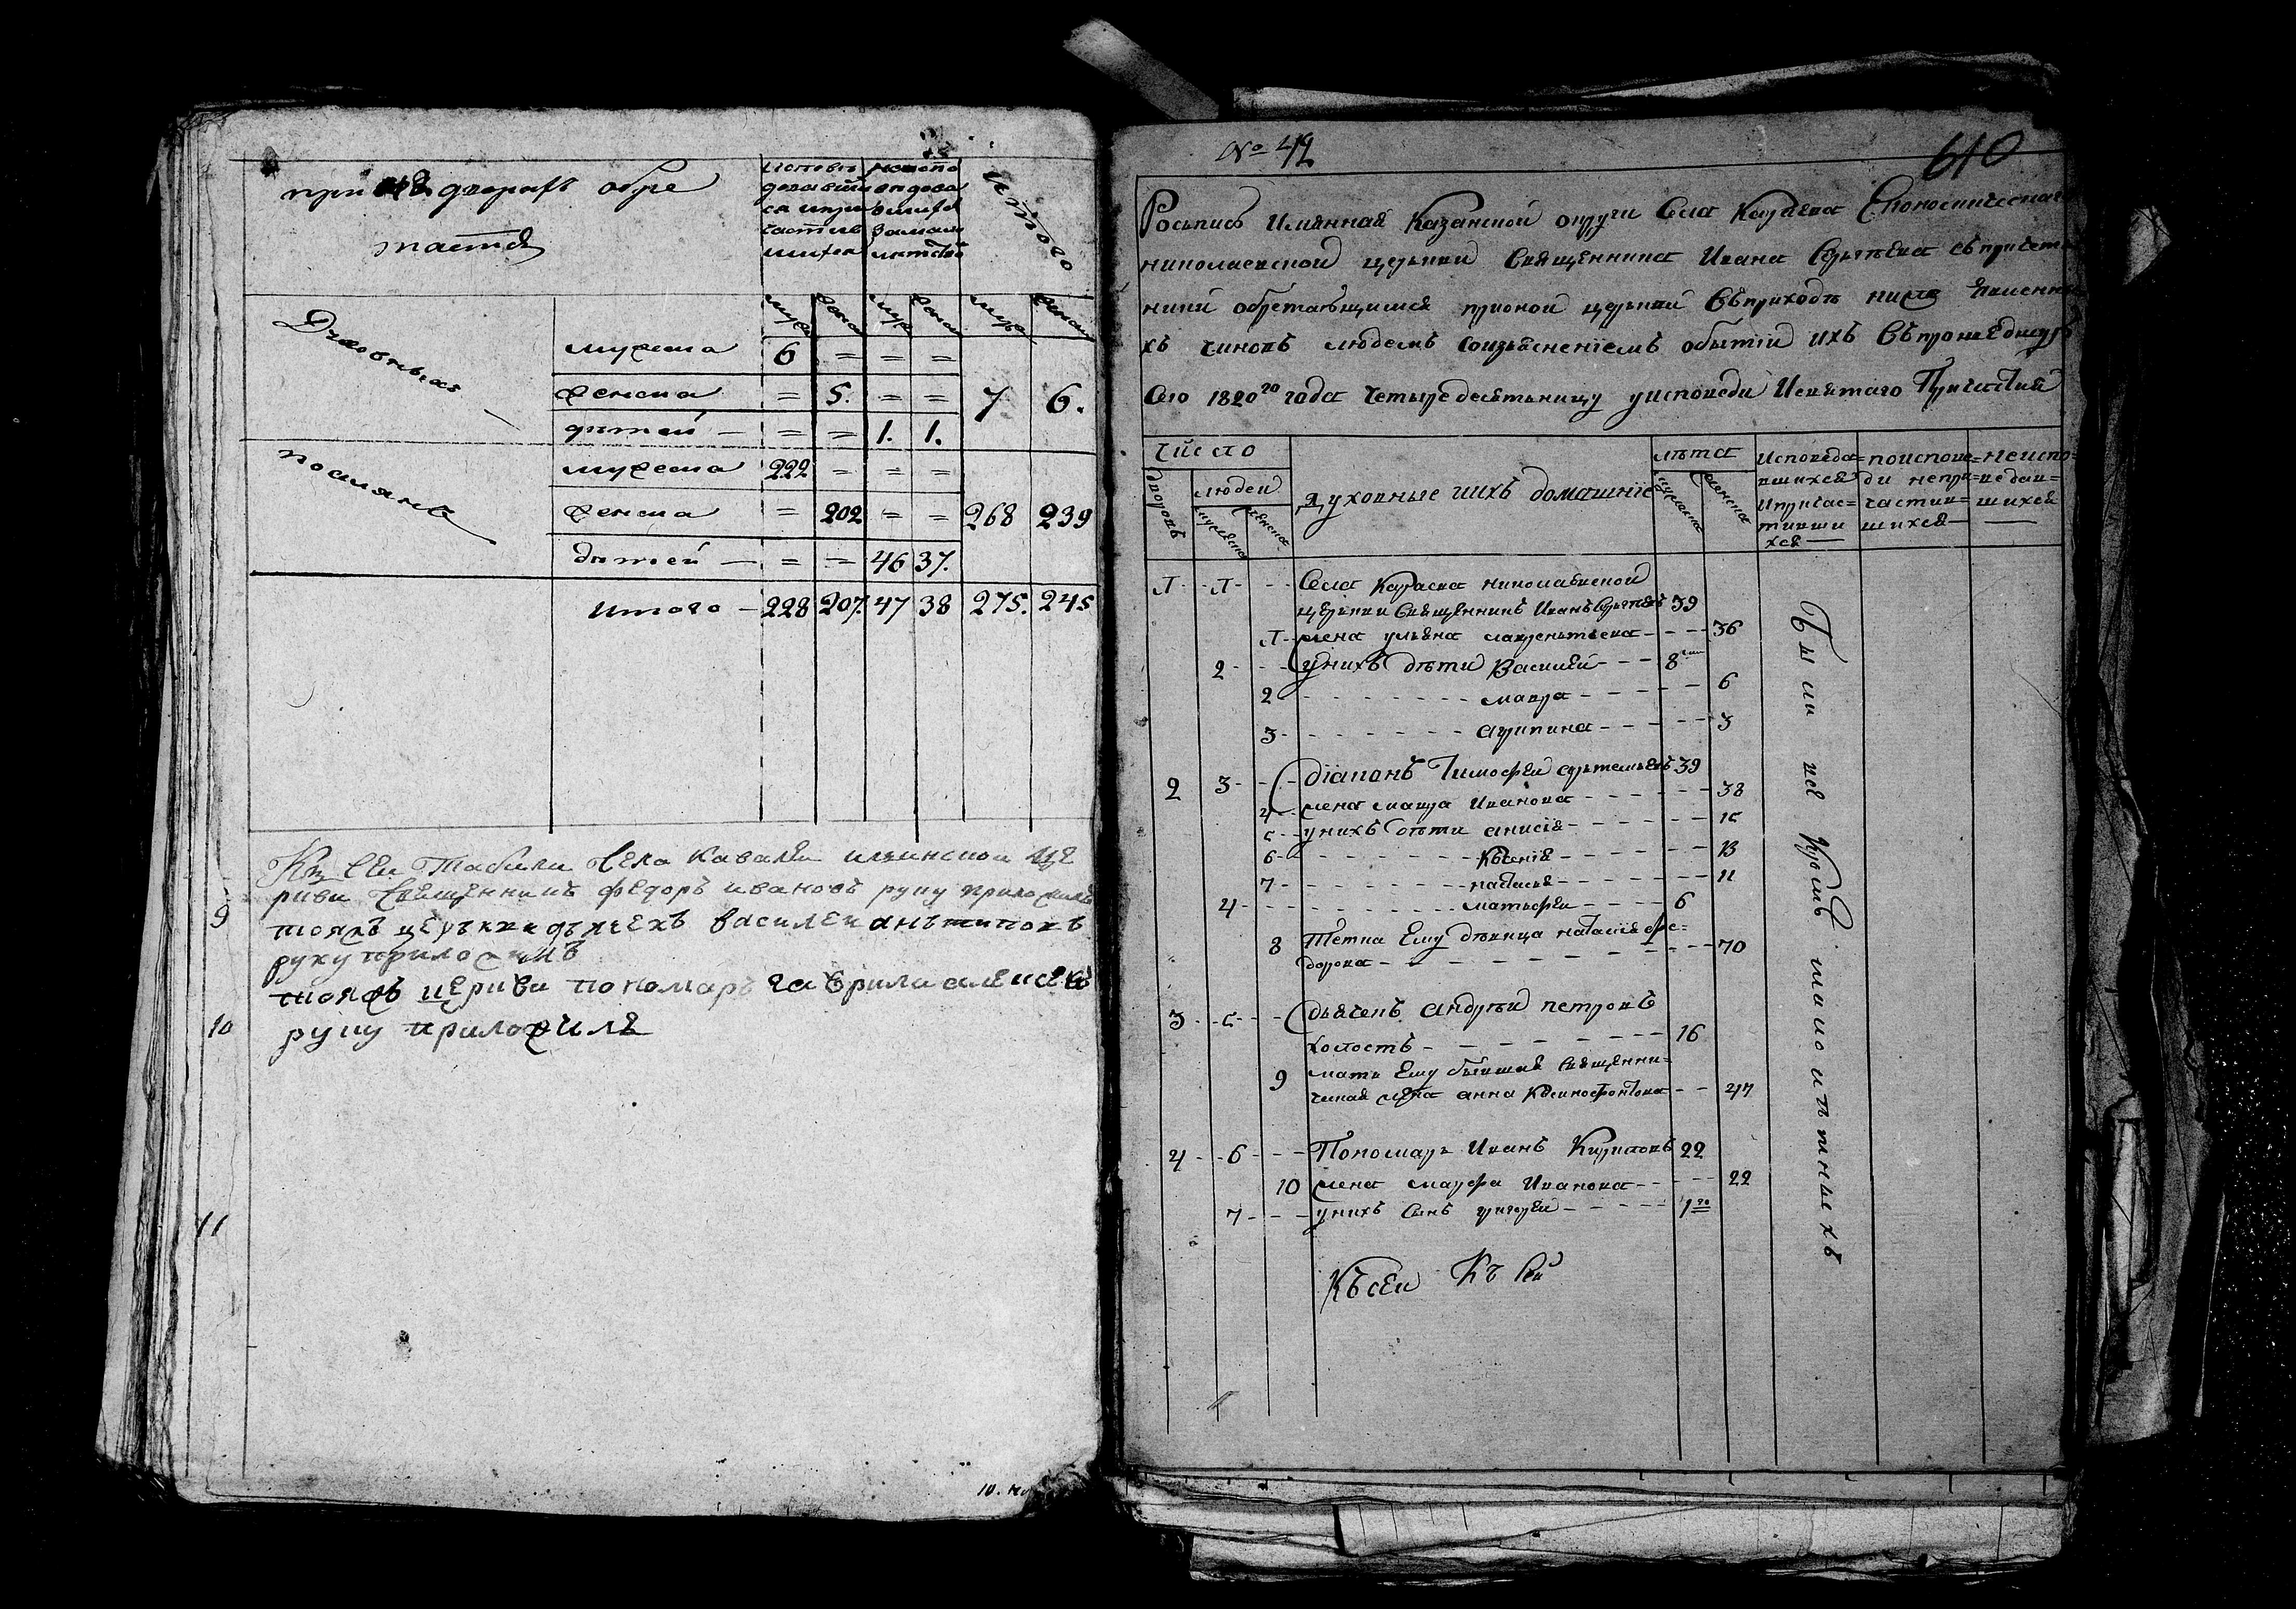 при дворахъ обре
тается
Исповѣ
довавши
ся и при
частив
шихся
неиспо
вѣдова
вшихся
за мало
лѣтство
итого
муж женск муж женск муж женск
Духовныхъ
мужеска 6 = = =
женска = 5. = = 7 6.
дѣтей — = = 1. 1.
поселянъ
мужеска 222 = = =
женска = 202 = = 268 239
дѣтей — = = 46 37.
итого — 228 207. 47 38 275. 245
Къ Сеи Табели Села Кавалей ильинской це
ркви Священникъ Федоръ ивановъ руку приложилъ
9
тояжъ церкви дьячекъ василеи анътиповъ
руку приложилъ
тояжъ церкви пономарь гаврила алексеевъ
10
руку приложилъ
11
№ 42
610
Роспись Имянная Казанской округи Села Караева
николаевской церькви Священника Ивана Сергѣева съ причетн
ники обретающимся прионой церькви Въ приходѣ ниже
хъ чиновъ людемъ соизъяснениемъ обытіи ихъ Въ
Сего 1820го года четыредесятьницу уисповеди Исвятаго Причастия
Число
дворовъ
людей
мужеска
женска
Духовные иихъ домашніе
лѣта
мужеска
женска
Исповеда=
вшихся
Ипричас=
тивши
хся —
поиспове=
ди непри=
частив=
шихся —
неиспо=
ведав=
шихся
1 - 1 - - - Села Караева николаевской
церькви Священникъ Иванъ Сергѣевъ 39
1 - жена ульяна лаврентьева - - - - 36
2 - - - унихъ дѣти Василеи - - - 8
2 - - - мавра - - - 6
3 - - - агрипина - - - 3
2 3 - - - діаконъ Тимофеи артемьевъ 39
4 жена мавра Иванова - - - 38
5 - унихъ дѣти анисія - - - 15
6 - - - Ксенія - - - 13
7 - - - наталья - - - 11
4 - - - матьфеи - - - 6
8 Тетка Ему дѣвица наталія фе=
дорова - - - 70
3 - 5 - - - дьячекъ андреи петровъ
холостъ - - - 16
9 мать Ему бывшая священни=
ческая жена анна Ксенофонтова - - 47
4 - 6 - - - Пономарь Иванъ Кириловъ 22
10 жена марфа Иванова - - - 22
7 - - - унихъ сынъ григореи - - - 1го
Къ сеи Къ Сеи
Были вся Кромѣ малолѣтныхъ
10.